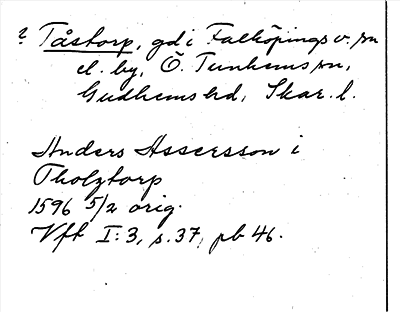 ? Tåstorp, gd i Falköpings v. sn
el. by, Ö. Tunhems sn,
Gudhems hd, Skar. l.
Anders Assersson i
Tholztorp
1596 5/2 orig.
Vft I:3, s. 37, pb 46.